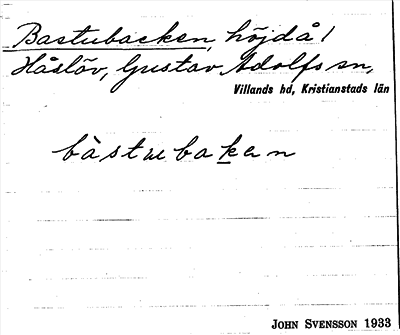 Bastubacken, höjd å 1
Håslöv, Gustav Adolfs sn,
Villands hd, Kristianstads län
bàstubaken
JOHN SVENSSON 1933